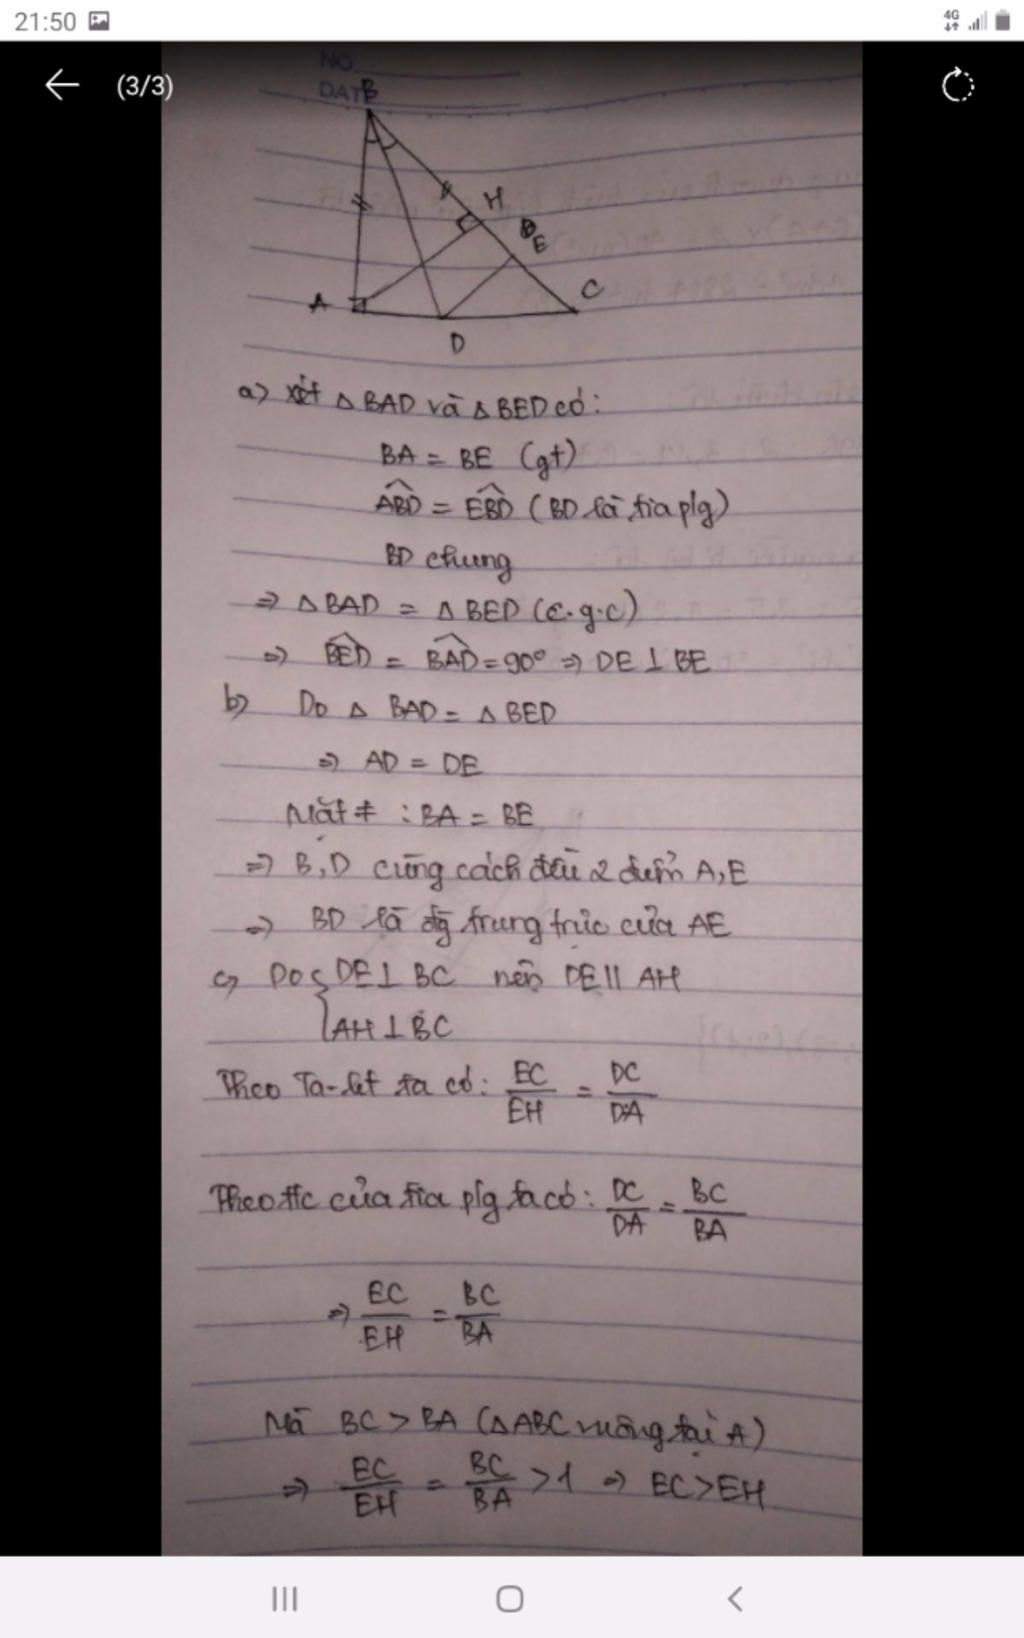 21:50
4G
(3/3)
NO
DATE
B
H
E
A
C
D
a) xét △BAD và △BED có:
BA = BE (gt)
ABD̂ = EBD̂ (BD là tia p/g)
BD chung
⇒ △BAD = △BED (c.g.c)
⇒ BED̂ = BAD̂ = 90° ⇒ DE ⊥ BE
b) Do △ BAD = △ BED
⇒ AD = DE
Mặt ≠ : BA = BE
⇒ B,D cùng cách đều 2 điểm A,E
⇒ BD là đg trung trực của AE
c) Do { DE ⊥ BC nên DE || AH
AH ⊥ BC
Theo Ta-lét ta có: EC/EH = DC/DA
Theo t/c của tia p/g ta có: DC/DA = BC/BA
⇒ EC/EH = BC/BA
Mà BC > BA (△ABC vuông tại A)
⇒ EC/EH = BC/BA > 1 ⇒ EC > EH